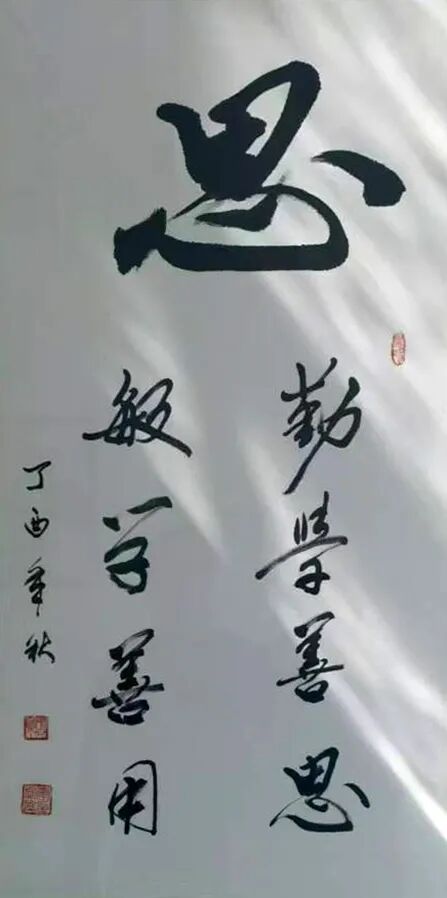 思
勤學善思
敏学善用
丁酉年秋